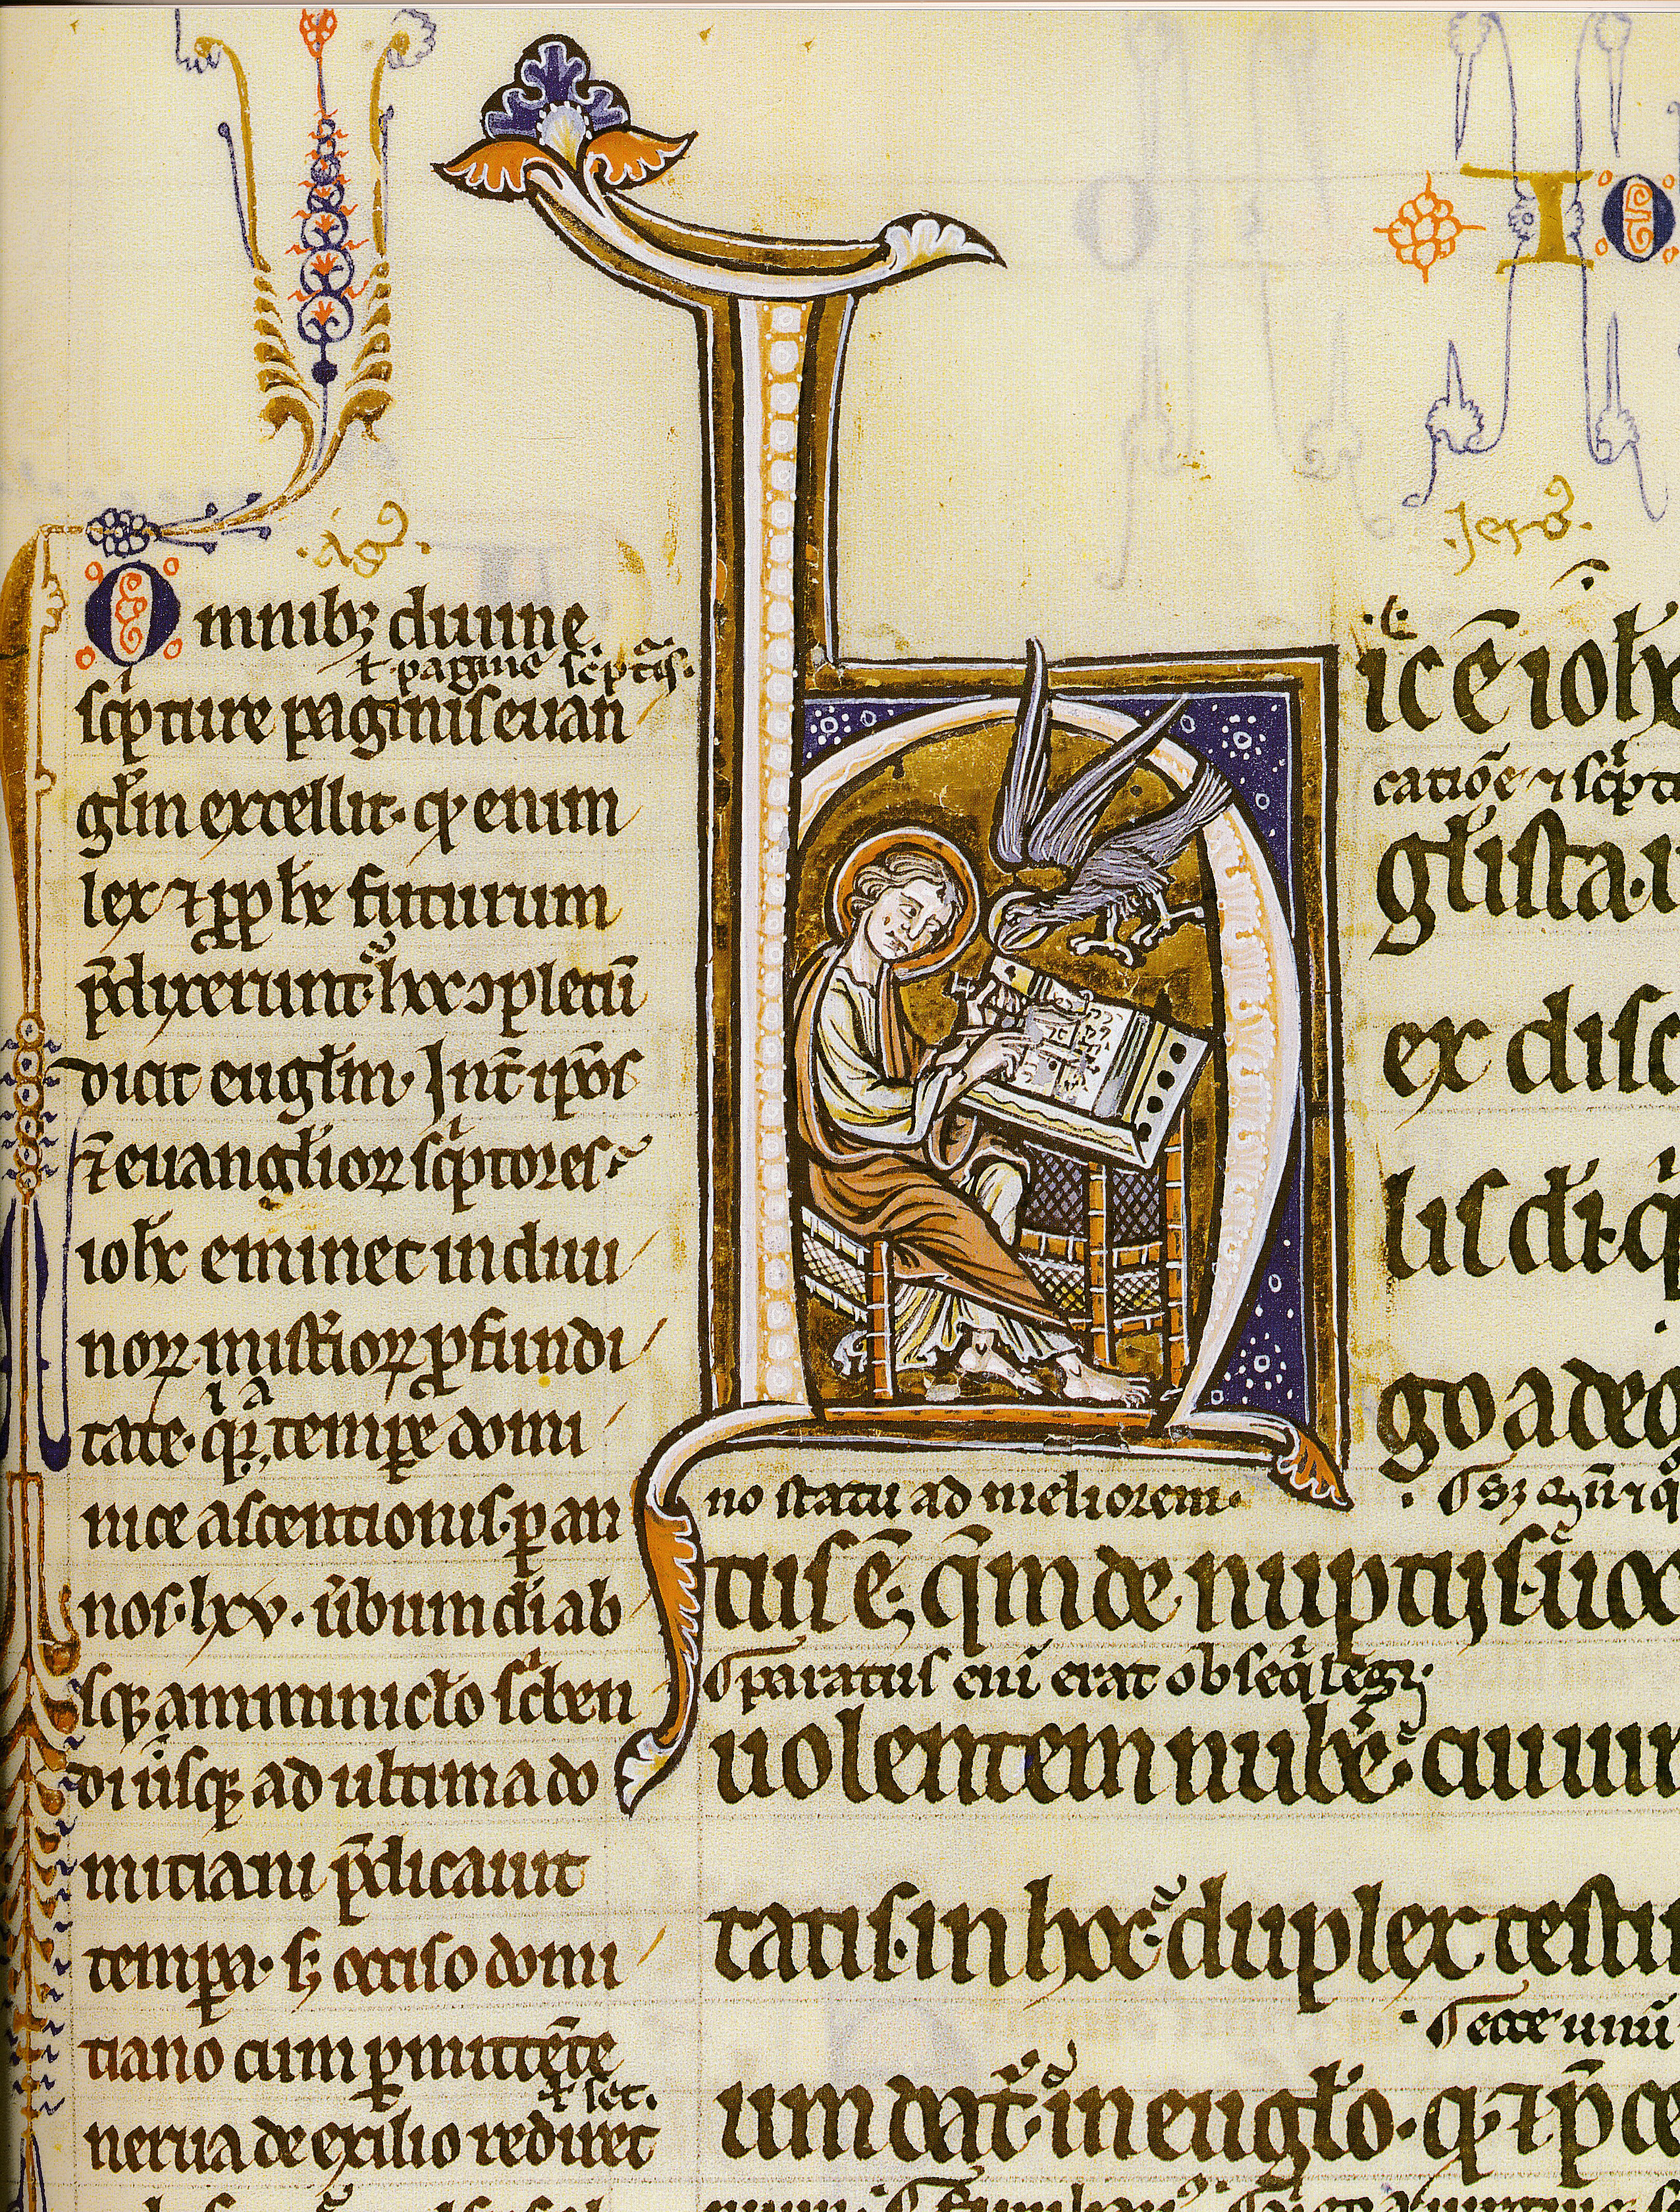 IO
.Aǵ.
.Jerō.
Omnib; diuine
ł pagine sc̄ptis.
sc̄pture paginis euan
gl̄m excellit. qͥ enim
lex ⁊ ꝓphe futurum
p̄dixerunt hoc ɔpletū
dicit eugl̄m. Int̄ ip̄os
⁊ euangl̄ioꝝ sc̄ptores
ioh̄s eminet in diui
noꝝ misťioꝝ ꝓfundi
tate. qͥ a tempore domi
nice ascentionis. ꝑ an
nos. lxv. u̾bum di ab
sqꝫ amminicl̄o sc̄ben
di usqꝫ ad ultima do
mitiani p̄dicauit
tempora. sꝫ occiso domi
tiano cum ꝑmittēte
ł sec.
nerua de exilio rediret
H
ic ē ioh̄
catiōe ⁊ sc̄pt
gl̄ista.
ex disc
lis di. q
go a deo
no statu ad meliorem.
tus ē. qm̄ de nuptijs. uoc
paratus eni erat obseqͥ legꝫ.
uolentem nubere.
tatis. in hoc duplex testi
ecce unū
um dat͛ in eugl̄o. qͥ ⁊ p̄ ce